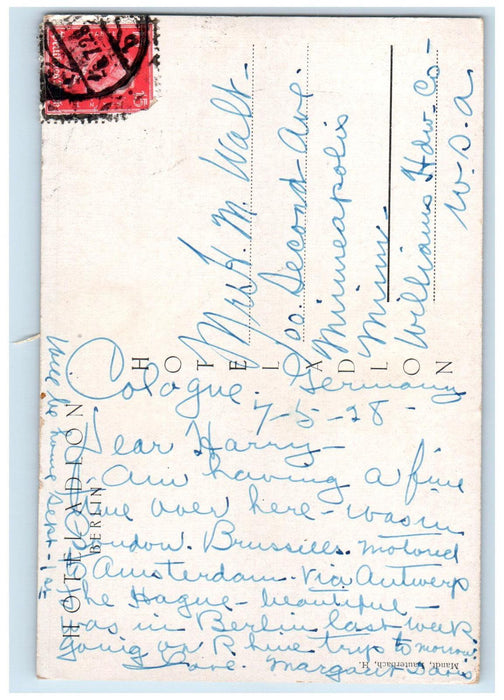 HOTEL ADLON
HOTEL ADLON
BERLIN
Cologne. Germany
7-5-28-
Dear Harry-
Am having a fine
time over here - was in
London. Brussills. motored
to Amsterdam. Via Antwerp
The Hague - beautiful -
was in Berlin last week
going on Rhine trip to morrow
Love. Margaret Davis
Will be home Sept-1st
H. M. Walt-
Second Ave.
Minneapolis
Minn-
Williams Hdw. Co-
U.S.A
Mandt, Lauterbach, H.
15